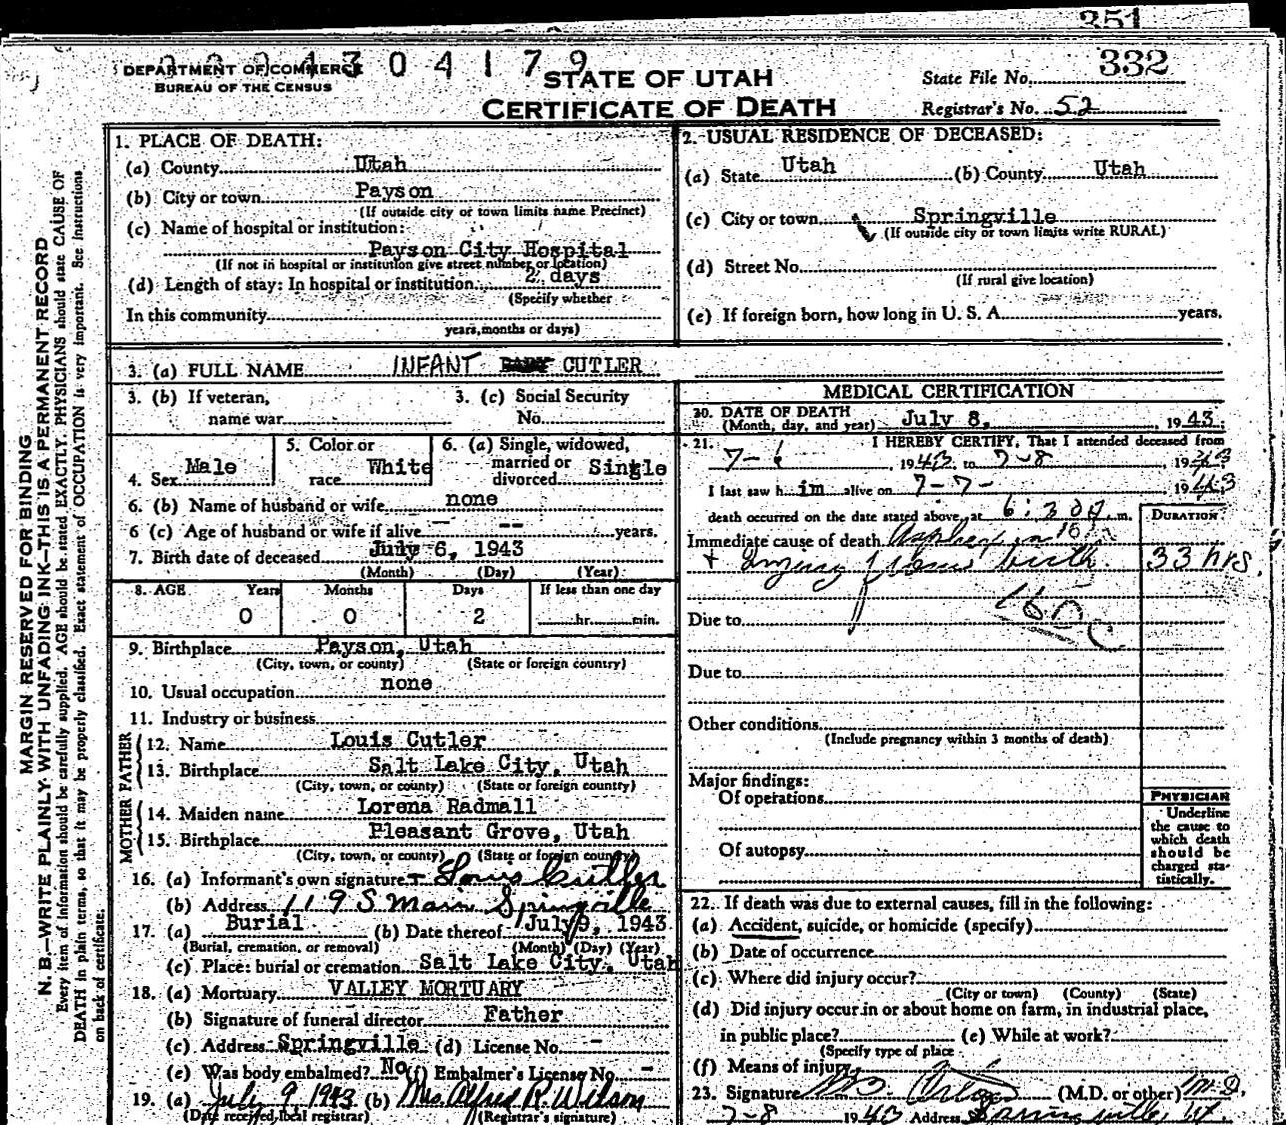 351
0 0 0 4 3 0 4 1 7 9
332
DEPARTMENT OF COMMERCE
BUREAU OF THE CENSUS
STATE OF UTAH
CERTIFICATE OF DEATH
State File No.
Registrar's No. 52
MARGIN RESERVED FOR BINDING
N. B.—WRITE PLAINLY, WITH UNFADING INK—THIS IS A PERMANENT RECORD
Every item of information should be carefully supplied. AGE should be stated EXACTLY. PHYSICIANS should state CAUSE OF
DEATH in plain terms, so that it may be properly classified. Exact statement of OCCUPATION is very important. See instructions
on back of certificate.
1. PLACE OF DEATH:
(a) County Utah
(b) City or town Payson
(If outside city or town limits name Precinct)
(c) Name of hospital or institution:
Payson City Hospital
(If not in hospital or institution give street number or location)
(d) Length of stay: In hospital or institution 2 days
(Specify whether
In this community
years, months or days)
2. USUAL RESIDENCE OF DECEASED:
(a) State Utah (b) County Utah
(c) City or town Springville
(If outside city or town limits write RURAL)
(d) Street No.
(If rural give location)
(e) If foreign born, how long in U. S. A. years.
3. (a) FULL NAME INFANT CUTLER
3. (b) If veteran,
name war
3. (c) Social Security
No.
4. Sex Male
5. Color or
race White
6. (a) Single, widowed,
married or
divorced Single
6. (b) Name of husband or wife none
6 (c) Age of husband or wife if alive -- -- years.
7. Birth date of deceased July 6, 1943
(Month) (Day) (Year)
8. AGE Years Months Days If less than one day
0 0 2 hr. min.
9. Birthplace Payson, Utah
(City, town, or county) (State or foreign country)
10. Usual occupation none
11. Industry or business
FATHER
12. Name Louis Cutler
13. Birthplace Salt Lake City, Utah
(City, town, or county) (State or foreign country)
MOTHER
14. Maiden name Lorena Radmall
15. Birthplace Pleasant Grove, Utah
(City, town, or county) (State or foreign country)
16. (a) Informant's own signature Louis Cutler
(b) Address 119 S Main Springville
17. (a) Burial (b) Date thereof July 9, 1943
(Burial, cremation, or removal) (Month) (Day) (Year)
(c) Place: burial or cremation Salt Lake City, Utah
18. (a) Mortuary VALLEY MORTUARY
(b) Signature of funeral director Father
(c) Address Springville (d) License No. -
(e) Was body embalmed? No (f) Embalmer's License No. -
19. (a) July 9 1943 (b) Mrs. Alfred R. Wilson
(Date received, local registrar) (Registrar's signature)
MEDICAL CERTIFICATION
20. DATE OF DEATH
(Month, day, and year) July 8, 1943.
21. I HEREBY CERTIFY, That I attended deceased from
7-6, 1943 to 7-8, 1943
I last saw him alive on 7-7- 1943
death occurred on the date stated above, at 6:30 m.
DURATION
Immediate cause of death
+ Injury from birth. 33 hrs.
Due to
Due to
Other conditions
(Include pregnancy within 3 months of death)
Major findings:
Of operations
Of autopsy
PHYSICIAN
Underline
the cause to
which death
should be
charged sta-
tistically.
22. If death was due to external causes, fill in the following:
(a) Accident, suicide, or homicide (specify)
(b) Date of occurrence
(c) Where did injury occur?
(City or town) (County) (State)
(d) Did injury occur in or about home on farm, in industrial place,
in public place? (e) While at work?
(Specify type of place
(f) Means of injury
23. Signature (M.D. or other) M.D.
7-8 1943 Address Springville, Ut.